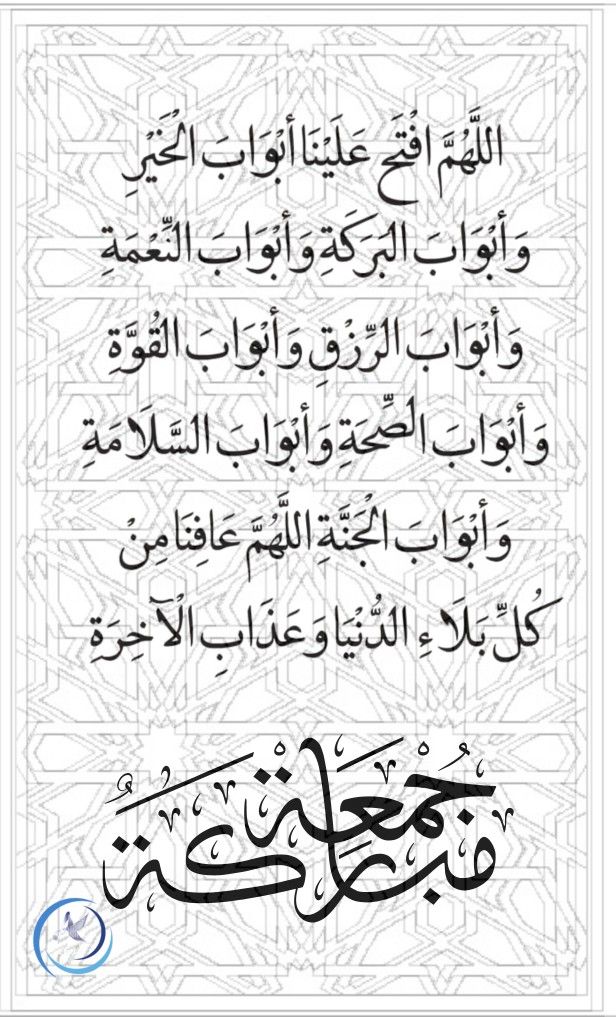 اللَّهُمَّ افْتَحْ عَلَيْنَا أَبْوَابَ الْخَيْرِ
وَأَبْوَابَ الْبَرَكَةِ وَأَبْوَابَ النِّعْمَةِ
وَأَبْوَابَ الرِّزْقِ وَأَبْوَابَ الْقُوَّةِ
وَأَبْوَابَ الصِّحَةِ وَأَبْوَابَ السَّلَامَةِ
وَأَبْوَابَ الْجَنَّةِ اللَّهُمَّ عَافِنَا مِنْ
كُلِّ بَلَاءِ الدُّنْيَا وَعَذَابِ الْآخِرَةِ
جُمْعَةٌ
مُبَارَكَةٌ